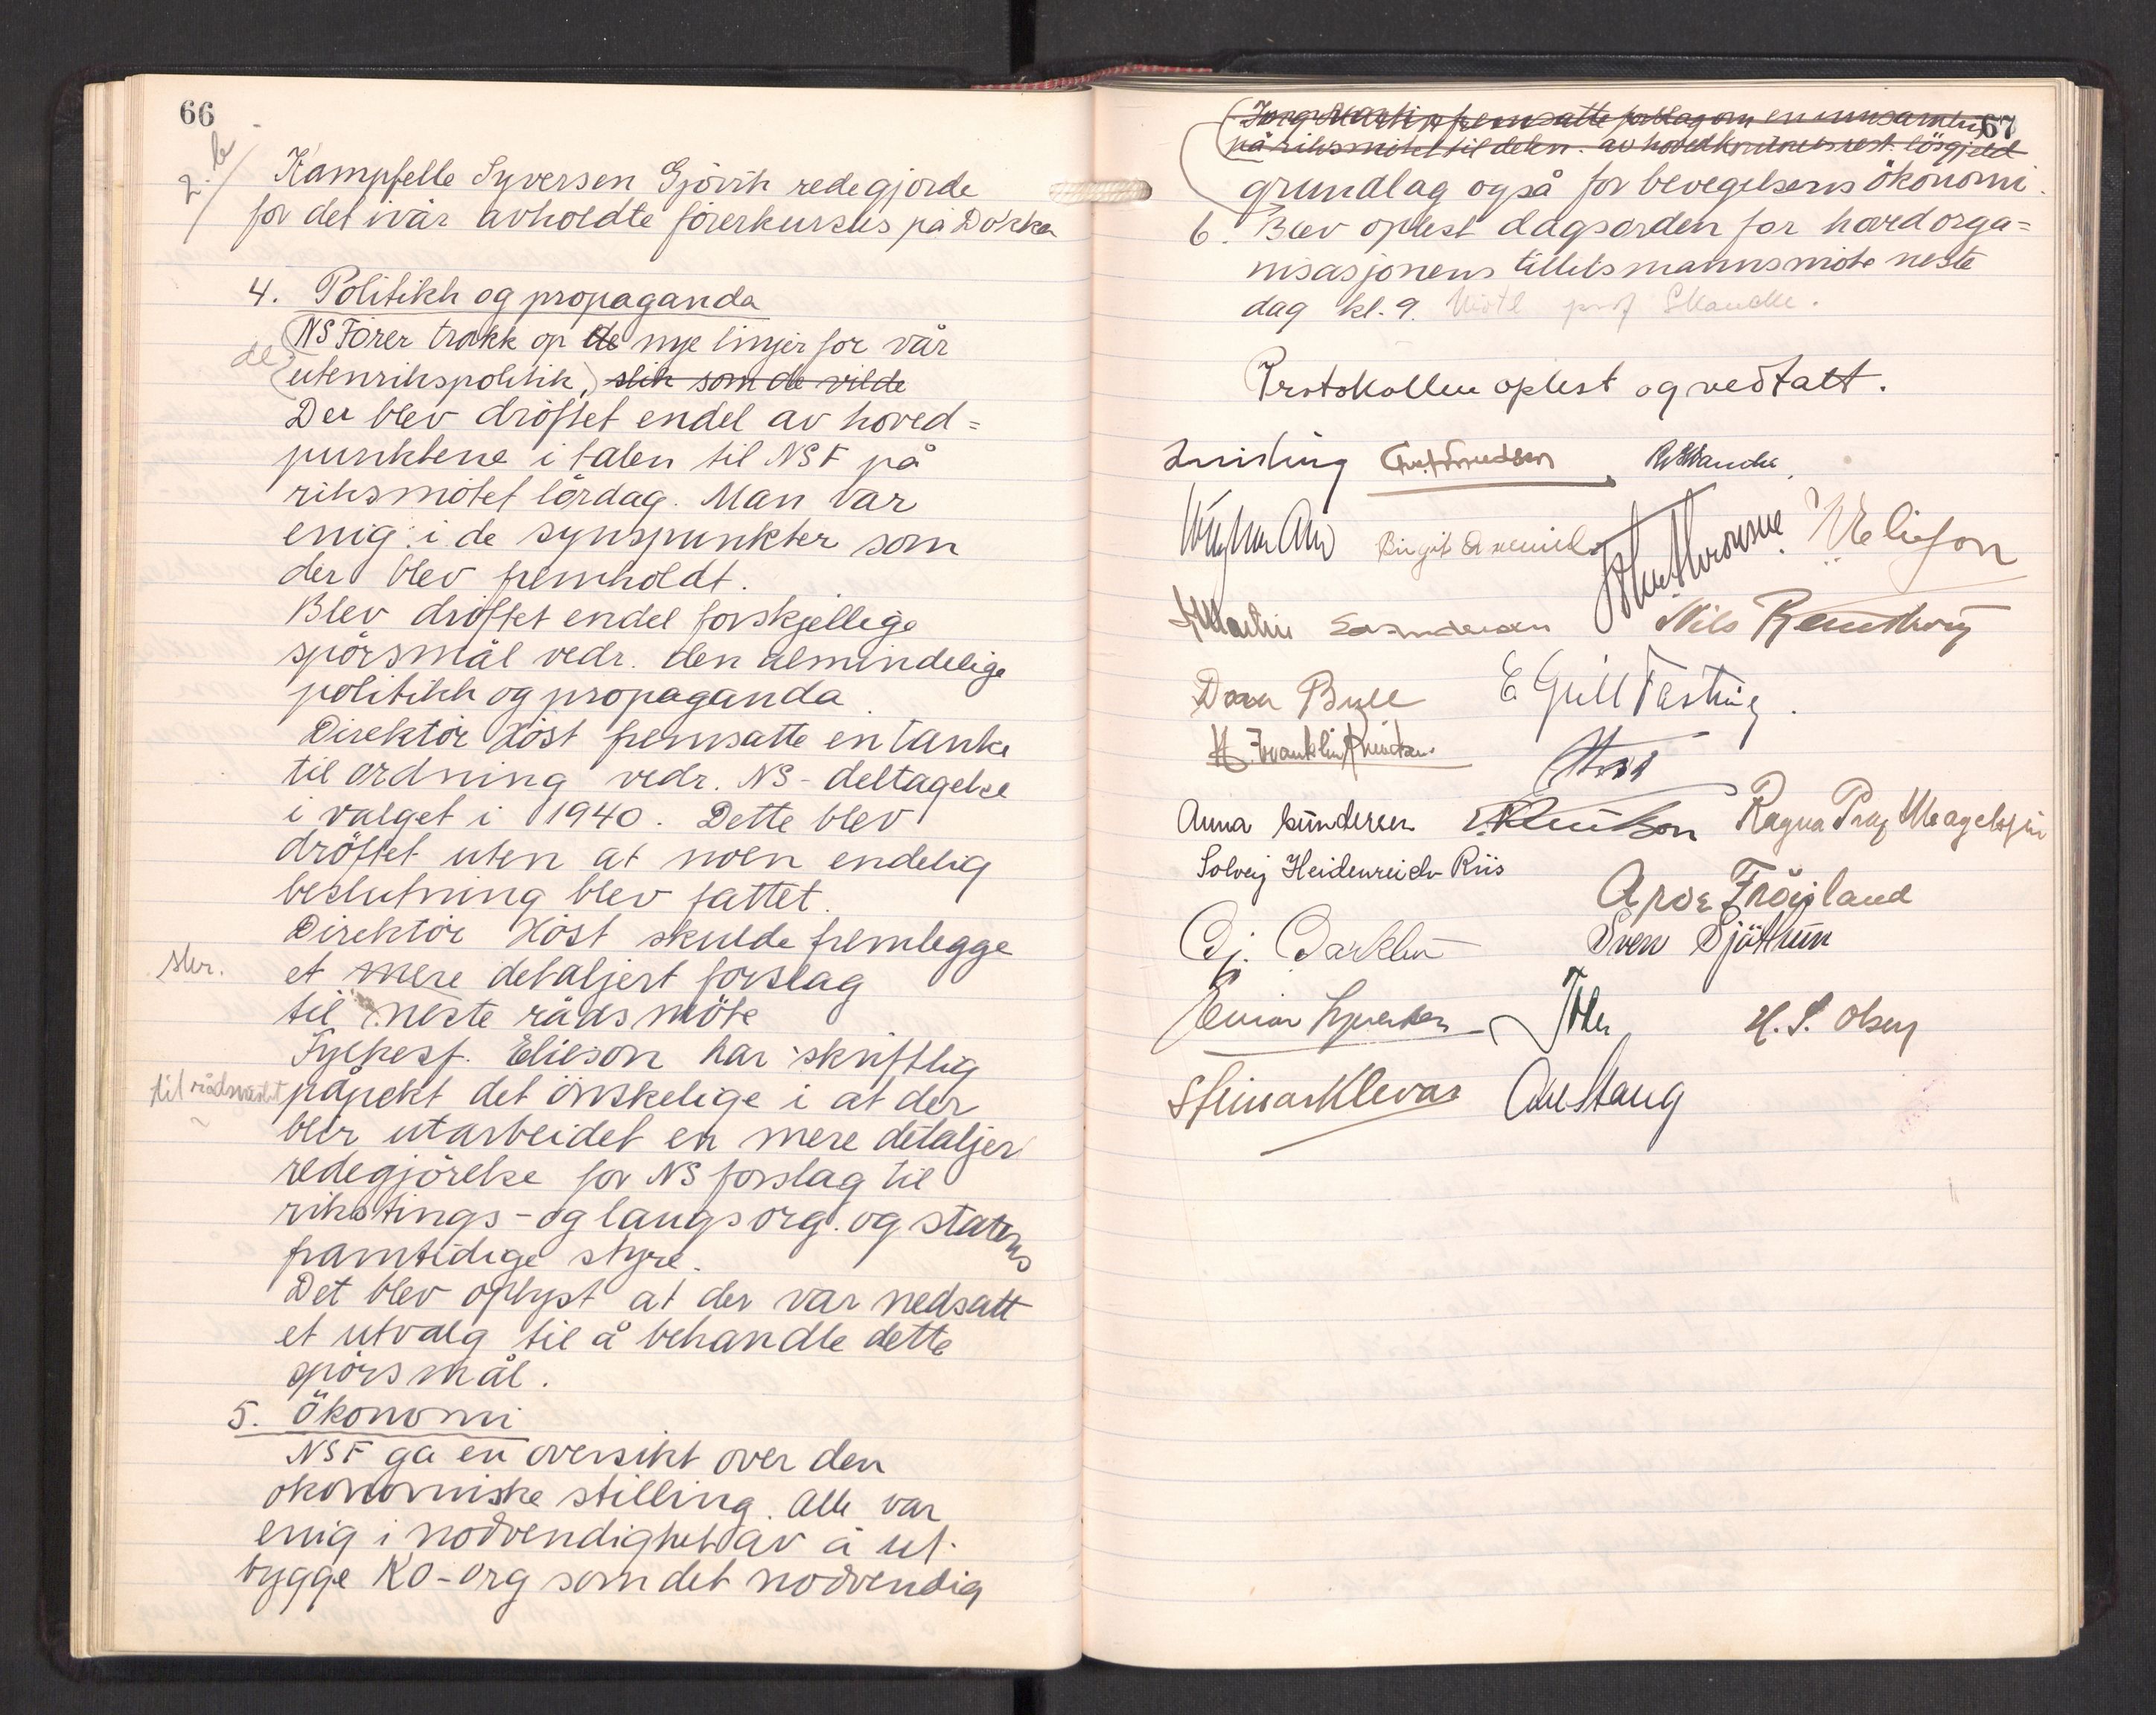 66
2. b
Kampfelle Syversen Gjövik redegjorde
for det ivår avholdte förerkursus på Dokka
4. Politikk og propaganda
NS Förer trakk op de nye linjer for vår
de
utenrikspolitik, slik som de vilde
Der blev dröftet endel av hoved=
punktene i talen til NSF på
riksmötet lördag. Man var
enig i de synspunkter som
der blev fremholdt.
Blev dröftet endel forskjellige
spörsmål vedr. den almindelige
politikk og propaganda.
Direktör Höst fremsatte en tanke
til ordning vedr. NS-deltagelse
i valget i 1940. Dette blev
dröftet uten at noen endelig
beslutning blev fattet.
Direktör Höst skulde fremlegge
skr.
et mere detaljert forslag
til neste rådsmöte
Fylkesf. Elieson har skriftlig
til rådsmötet
påpekt det önskelige i at der
blir utarbeidet en mere detaljer
redegjörelse for NS forslag til
rikstings- og laugsorg. og statens
framtidige styre.
Det blev oplyst at der var nedsatt
et utvalg til å behandle dette
spörsmål.
5. Ökonomi
NSF ga en oversikt over den
ökonomiske stilling. Alle var
enig i nödvendighet av å ut-
bygge KO-org som det nödvendig
67
fremsatte forslag om en innsamling
på riksmötet til dekn. av hovedkontorets rest. lösgjeld
grundlag også for bevegelsens ökonomi.
6. Blev oplest dagsorden for hovedorga=
nisasjonens tillitsmannsmöte neste
dag kl. 9. prof Skancke.
Protokollen oplest og vedtatt.
Quisling R Skancke
Birgit
Elieson
Nils
Dora Bull E Gill Fasting.
H. Franklin Knudsen
Anna Gundersen Ragna Prag Magelssen
Solveig Heidenreich Riis
Arve Fröisland
Sven Sjötun
Einar Syversen H. S. Olsen
Steinar Klevar Axel Stang